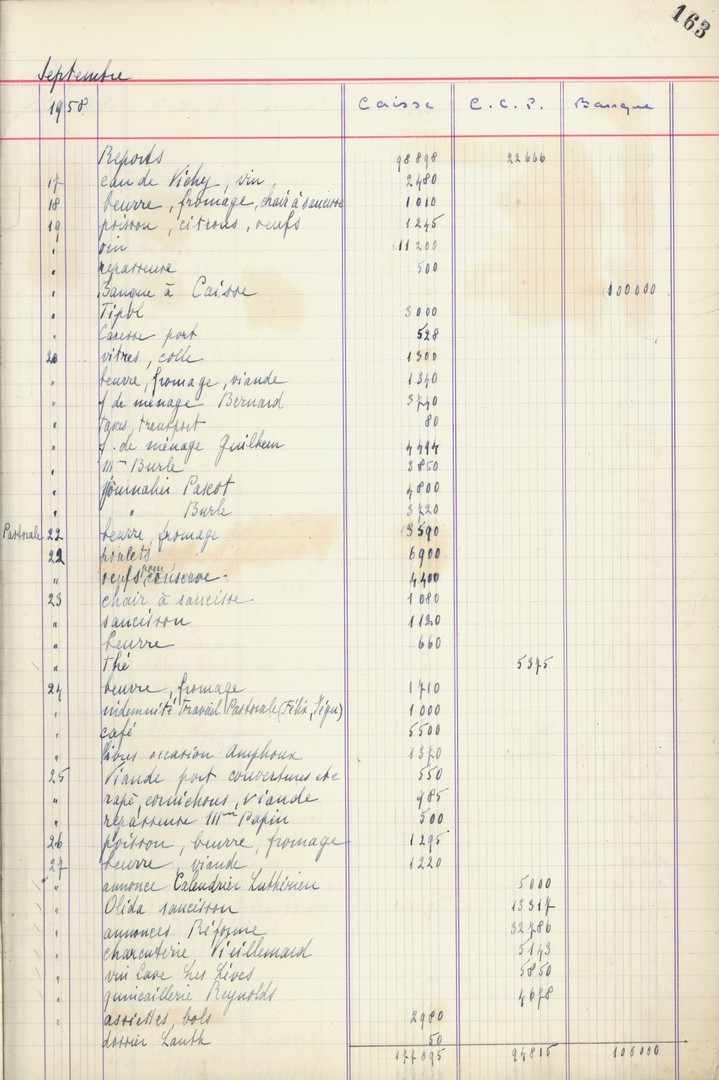 163
Septembre
1958 Caisse C.C.P. Banque
Reports 98898 22666
17 eau de Vichy, vin 2480
18 beurre, fromage, chair à saucisse 1010
19 poisson, citrons, oeufs 1245
" vin 11200
" repasseuse 500
" Banque à Caisse 100000
" Tipol 3000
" Caresse port 528
20 vitres, colle 1300
" beurre, fromage, viande 1340
" f de ménage Bernard 3740
" taxes, transport 80
" f. de ménage Guilhem 4494
" Mme Burle 3850
" Journalier Pascot 4800
" " Burle 3720
Pastorale 22 beurre, fromage 13590
22 poulets 6900
" oeufs pour conserve 4400
23 chair à saucisse 1080
" saucisson 1120
" beurre 660
" thé 5375
24 beurre, fromage 1710
" indemnité Travail Pastorale (Félix, ) 1000
" café 5500
" livres occasion Amphoux 1370
25 Viande port couvertures etc 550
" rapé, cornichons, viande 985
" repasseuse Mme Papin 500
26 poisson, beurre, fromage 1295
27 beurre, viande 1220
" annonce Calendrier Luthérien 5000
" Olida saucisson 13317
" annonces Réforme 32786
" charcuterie Vieillemard 5143
" vin Cave Les Lèves 5850
" quincaillerie Reynolds 4678
" assiettes, bols 2980
dossier Lauth 50
177095 94815 100000